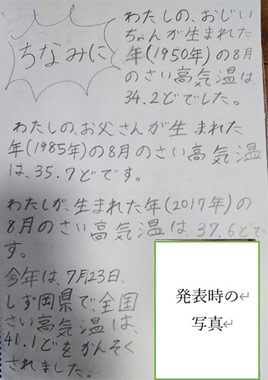 ちなみに
わたしの、おじい
ちゃんが生まれた
年(1950年)の8月
のさい高気温は、
34.2どでした。
わたしの、お父さんが生まれた
年(1985年)の8月のさい高気温
は、35.7どです。
わたしが、生まれた年(2017年)の
8月のさい高気温は、37.6どで
す。
今年は、7月23日、
しず岡県で、全国
さい高気温は、
41.1どをかんそく
されました。
発表時の↵
写真↵